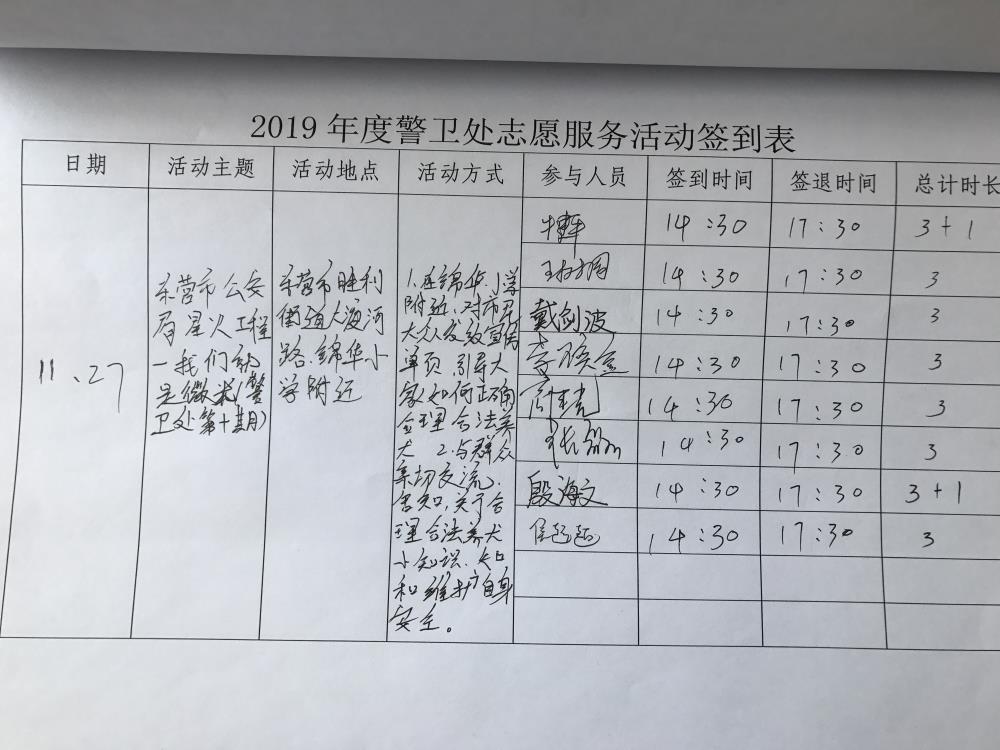 2019 年度警卫处志愿服务活动签到表
日期 活动主题 活动地点 活动方式 参与人员 签到时间 签退时间 总计时长
11.27
东营市公安
局星火工程
—我们就
是微米(警
卫处第十期)
东营市胜利
街道大海河
路.锦华小
学附近
1.在锦华小学
附近,对市民
大众发放宣传
单页.引导大
家如何正确
合理合法养
犬 2.与群众
亲切交流.
告知,关于合
理合法养犬
小知识.
和维护自身
安全。
14:30 17:30 3+1
14:30 17:30 3
戴剑波 14:30 17:30 3
14:30 17:30 3
14:30 17:30 3
14:30 17:30 3
殷海文 14:30 17:30 3+1
14:30 17:30 3